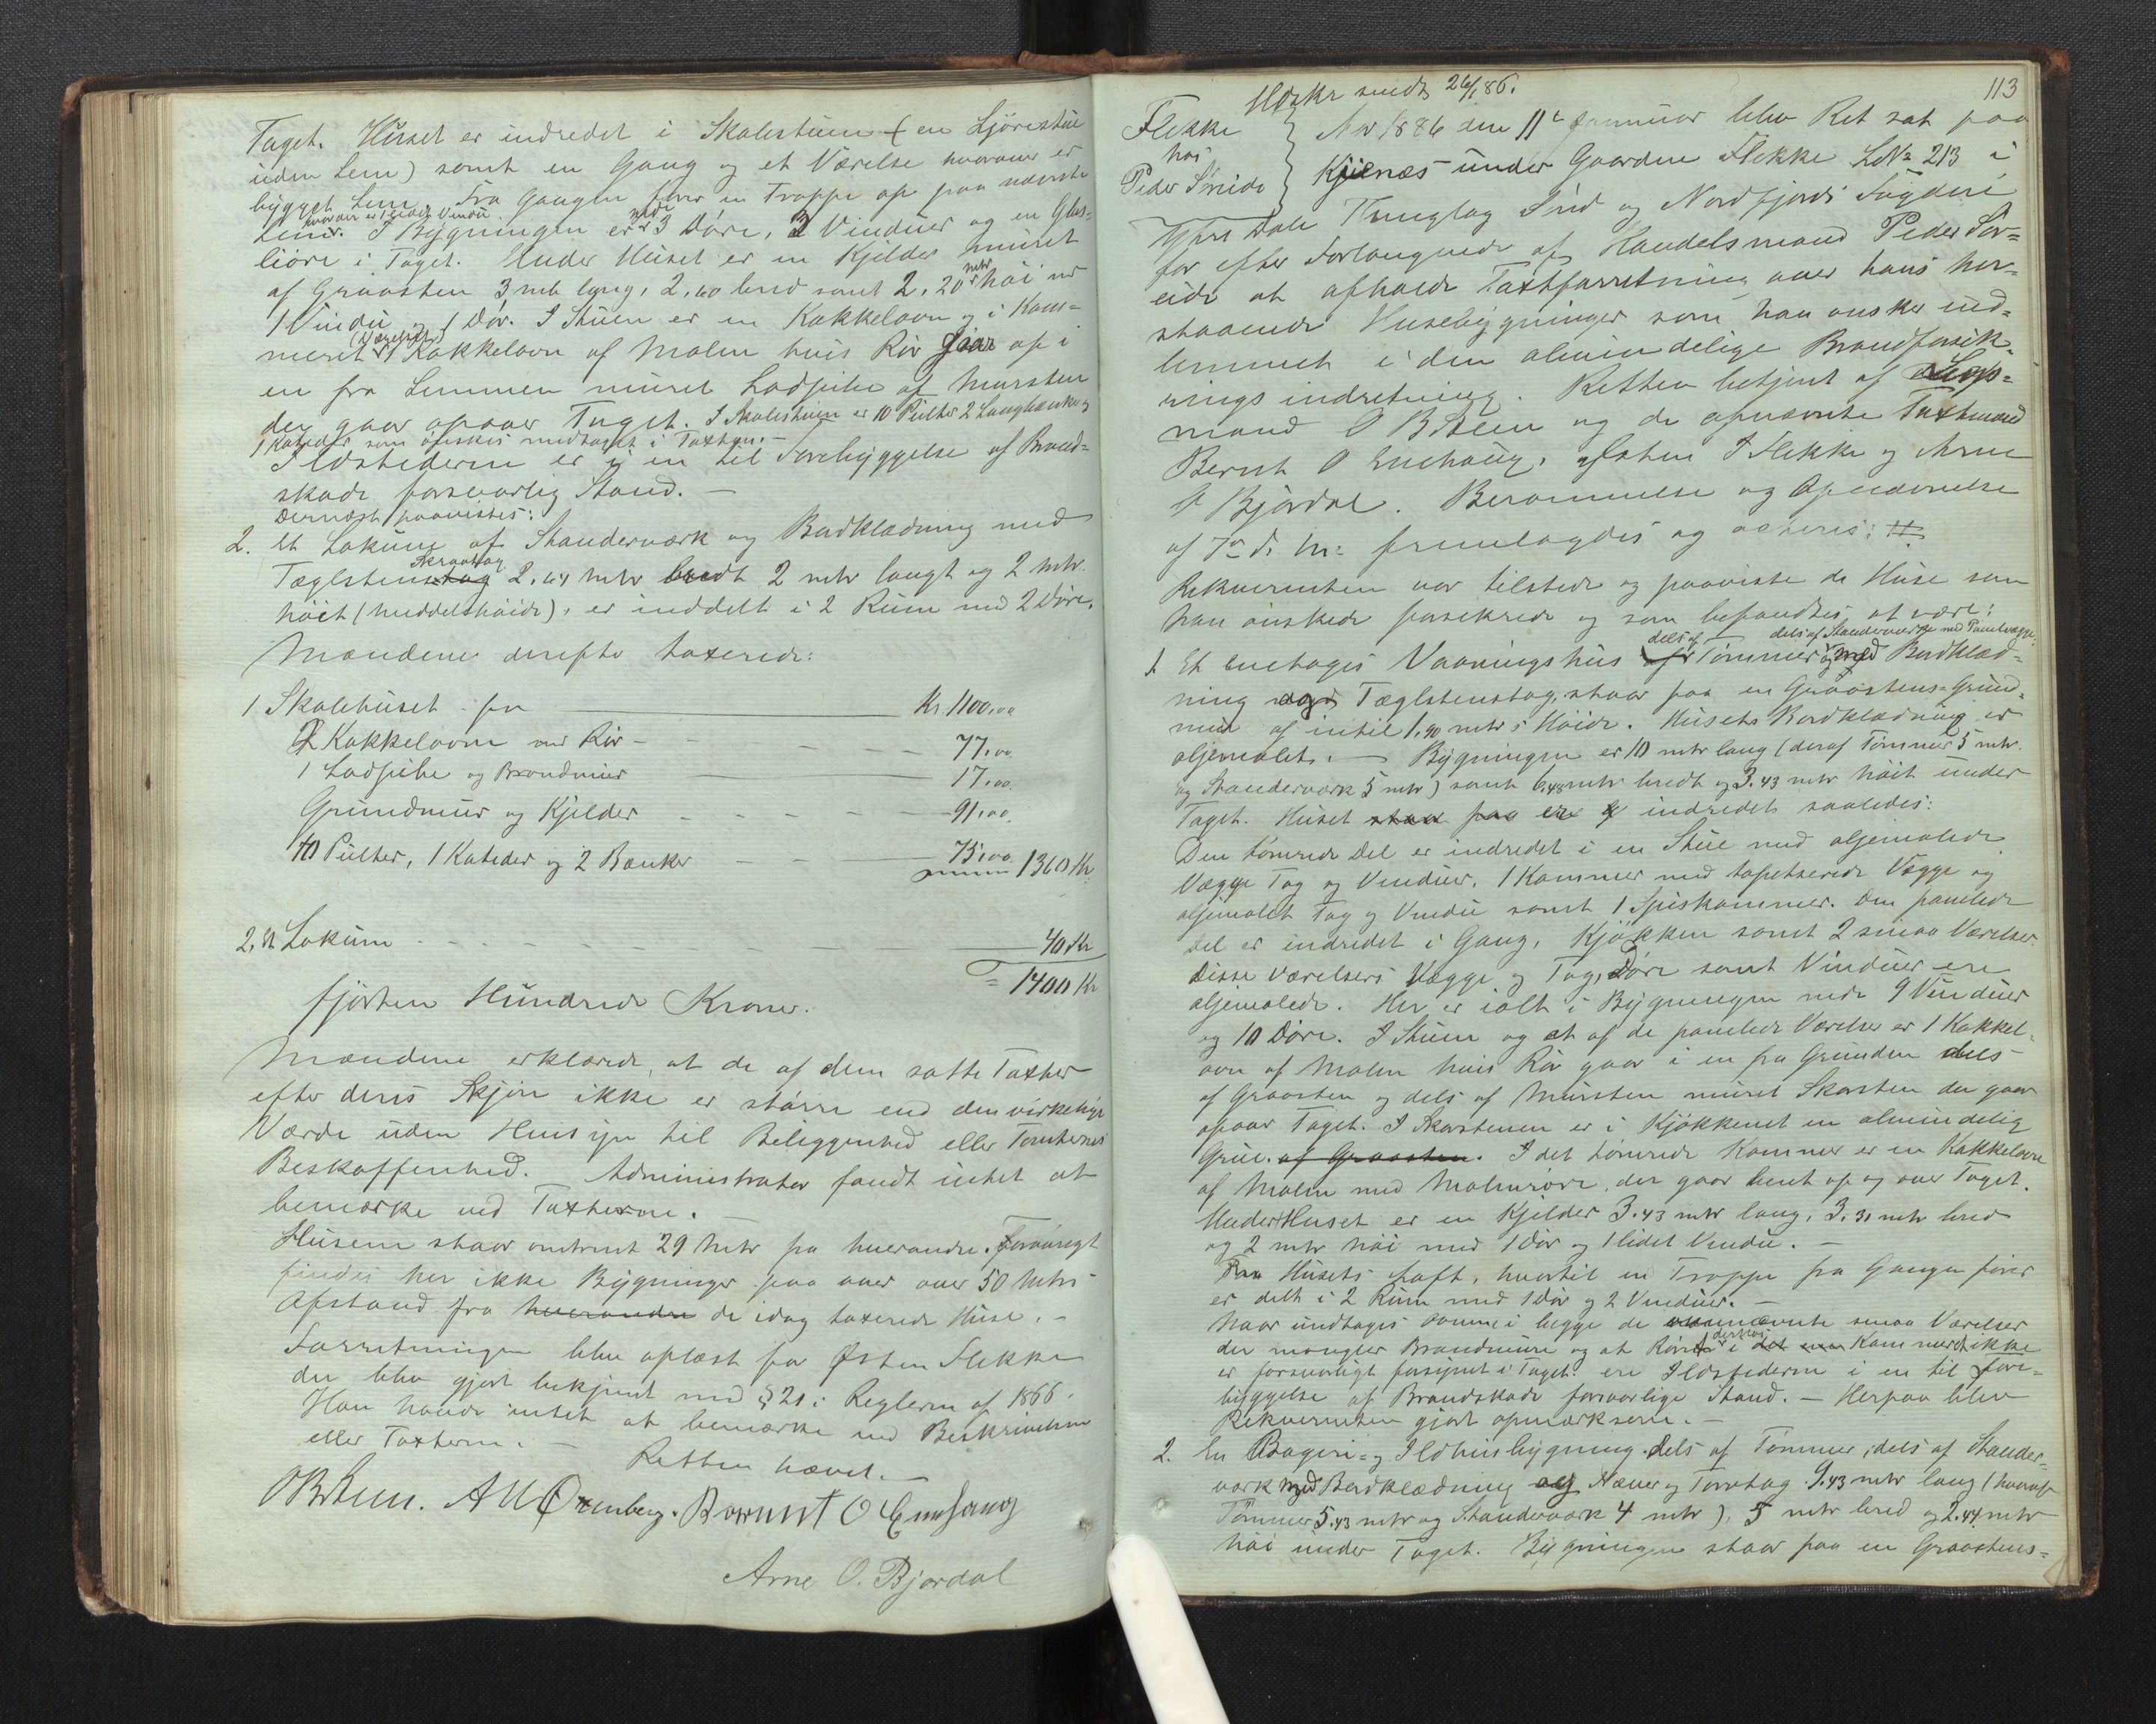 Taget. Huset er indredet i Skolestuen (en Ljörestue
uden Lem) samt en Gang og et Værelse hvorover er
bygget Lem. Fra Gangen fører en Trappe op paa nævnte
hvorover er 1 Vindu
Lem. I Bygningen er nede 3 Døre, 3 Vinduer og en Glas-
liøre i Taget. Under Huset er en Kjelder muret
af Graasten 3 mtr lang, 2,60 bred samt 2,20 mtr høi m
1 Vindu og 1 Dør. I Stuen er en Kakkelovn og i Kam-
meret (Værelset) 1 Kakkelovn af Malm hvis Rør gaar op i
en fra Lemmen muret Lodpibe af Mursten
der gaar opover Taget. I Skolestuen er 10 Pulter 2 Langbænke og
1 Kateder som ønskes medtaget i Taxten.-
Ildstederne er i en til Forebyggelse af Brand-
skade forsvarlig Stand. —
Dernæst paavistes:
2. Et Lokum af Standerværk og Bordklædning med
Tæglstens Skraatag 2,64 mtr bredt 2 mtr langt og 2 mtr
høit (middelshøide), er inddelt i 2 Rum med 2 Døre.
Mændene derefter taxerede:
1 Skolehuset for — Kr. 1100,00
2 Kakkelovne med Rør - - - 77,00
1 Lodpibe og Brandmur — 17,00
Grundmur og Kjelder - - - 91,00
10 Pulter, 1 Kateder og 2 Bænker — 75,00 1360 Kr
2, et Lokum - - - 40 Kr
= 1400 Kr
fjorten Hundrede Kroner.
Mændene erklærede, at de af dem satte Taxter
efter deres Skjøn ikke er større end den virkelige
Værdi uden Hensyn til Beliggenhed eller Tomternes
Beskaffenhed. Administrator fandt intet at
bemærke ved Taxterne.
Husene staar omtrent 29 Mtr fra hverandre. Forøvrigt
findes her ikke Bygninger paa over 50 Mtrs
Afstand fra hverandre de idag taxerede Huse. -
Forretningen blev oplæst for Østen Flekke
der blev gjort bekjendt med § 21 i Reglerne af 1866.
Han havde intet at bemærke ved Beskrivelsen
eller Taxterne. —
Retten hævet. —
OBSteen. Bernnt O Enehaug
Arne O. Bjordal
113
Udskr sendt 26/1 86.
Flekke
hos
Peder Søreide
Aar 1886 den 11te Januar blev Ret sat paa
Kjilnæs under Gaarden Flekke LNo 213 i
Yttre Dale Thinglag Sønd og Nordfjords Fogderi
for efter Forlangende af Handelsmand Peder Sør-
eide at afholde Taxtforretning over hans her-
staaende Husebygninger som han ønsker ind-
lemmet i den almindelige Brandforsik-
rings indretning. Retten betjent af Lens-
mand O B Steen og de opnævnte Taxtmænd
Bernt O Enehaug, Østen I Flekke og Arne
O Bjørdal. Berammelse og Opnævnelse
af 7de d. M: fremlagdes og acteres: #
Rekvirenten var tilstede og paaviste de Huse som
han ønskede forsikrede og som befandtes at være:
dels af dels af Standerværk med Panelvægge
1. Et enetages Vaaningshus af Tømmer og med Bordklæd-
ning og Tæglstenstag, staar paa en Graastens-Grund-
mur af intil 1,90 mtrs Høide. Husets Bordklædning er
oljemalet. — Bygningen er 10 mtr lang (deraf Tømmer 5 mtr.
og Standerværk 5 mtr) samt 6,48 mtr bredt og 3,43 mtr høit under
Taget. Huset staar paa er indredet saaledes:
Den tømrede Del er indredet i en Stue med oljemalede
Vægge Tag og Vinduer, 1 Kammer med tapetserede Vægge og
oljemalet Tag og Vindu samt 1 Spiskammer. Den panelede
Del er indredet i Gang, Kjøkken samt 2 smaa Værelser.
Disse Værelsers Vægge og Tag, Døre samt Vinduer ere
oljemalede. Her er ialt i Bygningen nede 9 Vinduer
og 10 Døre. I Stuen og et af de panelede Værelser er 1 Kakkel-
ovn af Malm hvis Rør gaar i en fra Grunden dels
af Graasten og dels af Mursten muret Skorsten der gaar
opover Taget. I Skorstenen er i Kjøkkenet en almindelig
Grue. af Graasten. I det tømrede Kammer er en Kakkelovn
af Malm med Malmrøre, der gaar bent op og over Taget.
Under Huset er en Kjelder 3.43 mtr lang, 3,31 mtr bred
og 2 mtr høi med 1 Dør og 1 lidet Vindu. —
Husets Loft, hvortil en Trappe fra Gangen fører
er delt i 2 Rum med 1 Dør og 2 Vinduer. —
Naar undtages i begge de smaa Værelser
der mangler Brandmure og at Røret i det Kammerset ikke
er forsvarligt forsynet i Taget, ere Ildstederne i en til Fore-
byggelse af Brandskade forsvarlige Stand. — Herpaa blev
Rekvirenten gjort opmærksom. —
2. En Bageri- og Ildhusbygning dels af Tømmer, dels af Stander-
værk med Bordklædning og Næver og Torvtag 9.43 mtr lang (hvoraf
Tømmer 5,43 mtr og Standerværk 4 mtr), 5 mtr bred og 2.44 mtr
høi under Taget. Bygningen staar paa en Graastens-